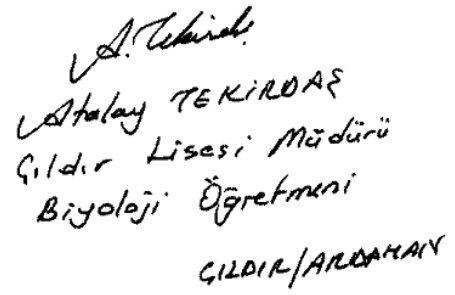 A. Tekirdaş
Atalay TEKİRDAŞ
Çıldır Lisesi Müdürü
Biyoloji Öğretmeni
ÇILDIR/ARDAHAN